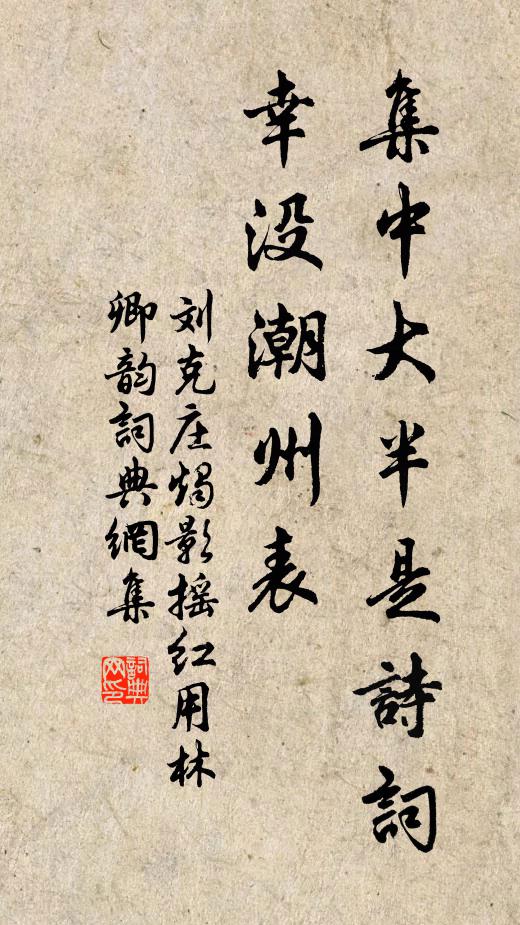 集中大半是詩詞
幸没潮州表
刘克庄烛影摇红用林
卿韵詞典網集
詞典網印